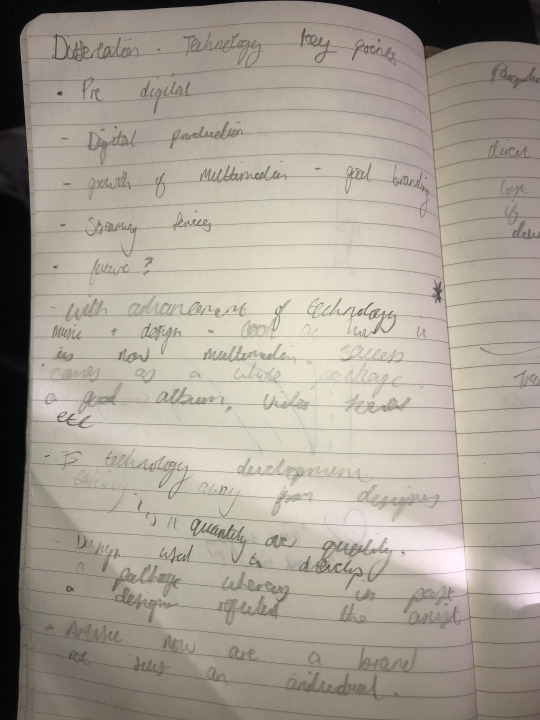 Dissertation - Technology key points
• Pre digital
- Digital production
- growth of multimedia - good branding
- Streaming services
• future?
- With advancement of technology
music + design - look at how it
is now multimedia. success
comes as a whole package.
a good album, video
etc
- Is technology development
taking away from designers
is it quantity over quality.
- Design used to develop
a package whereas in past
a designer the artist
- Artists now are a brand
not just an individual.